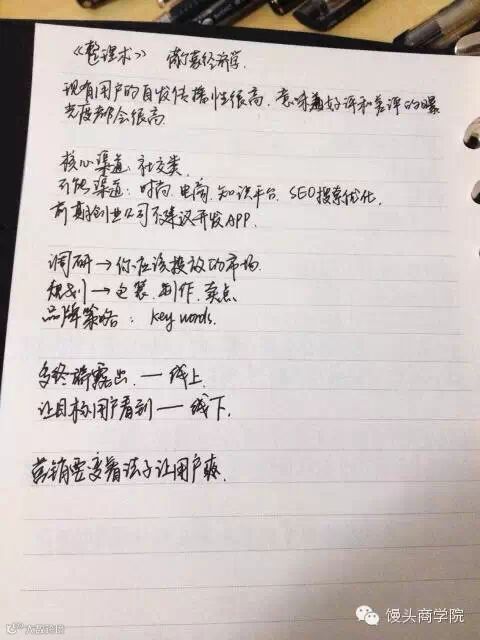 《整理术》 懒家经济学.
现有用户的自发传播性很高,意味着好评和差评的曝
光度都会很高.
核心渠道:社交类
功能渠道:时尚.电商.知识平台. SEO搜索优化.
前期创业公司不建议开发APP.
调研→你应该投放的市场.
规划→包装.制作.卖点
品牌策略: key words.
多终端露出.—线上.
让目标用户看到—线下.
营销要变着法子让用户爽.
馒头商学院